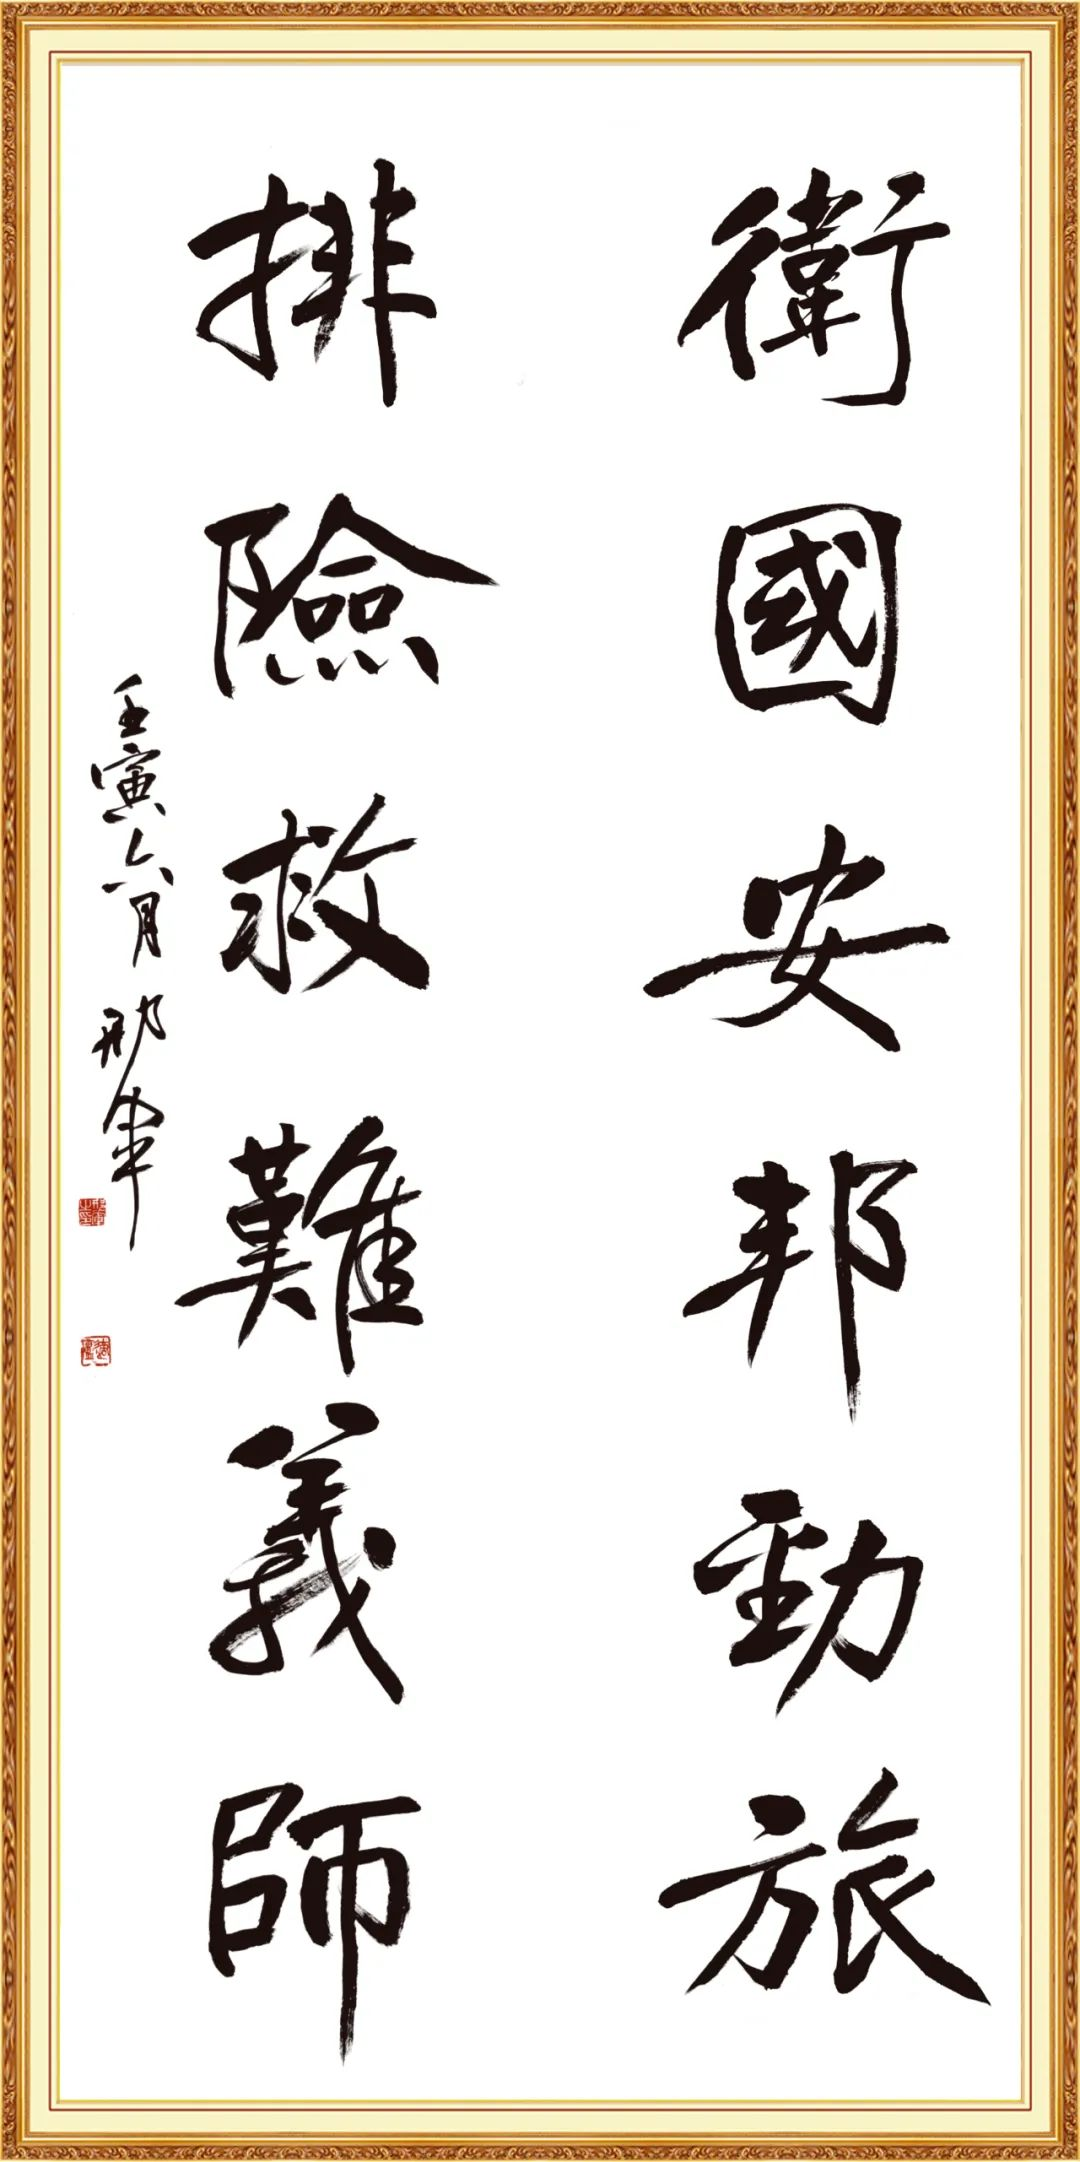 衛國安邦勁旅
排險救難義師
壬寅六月 邢軍